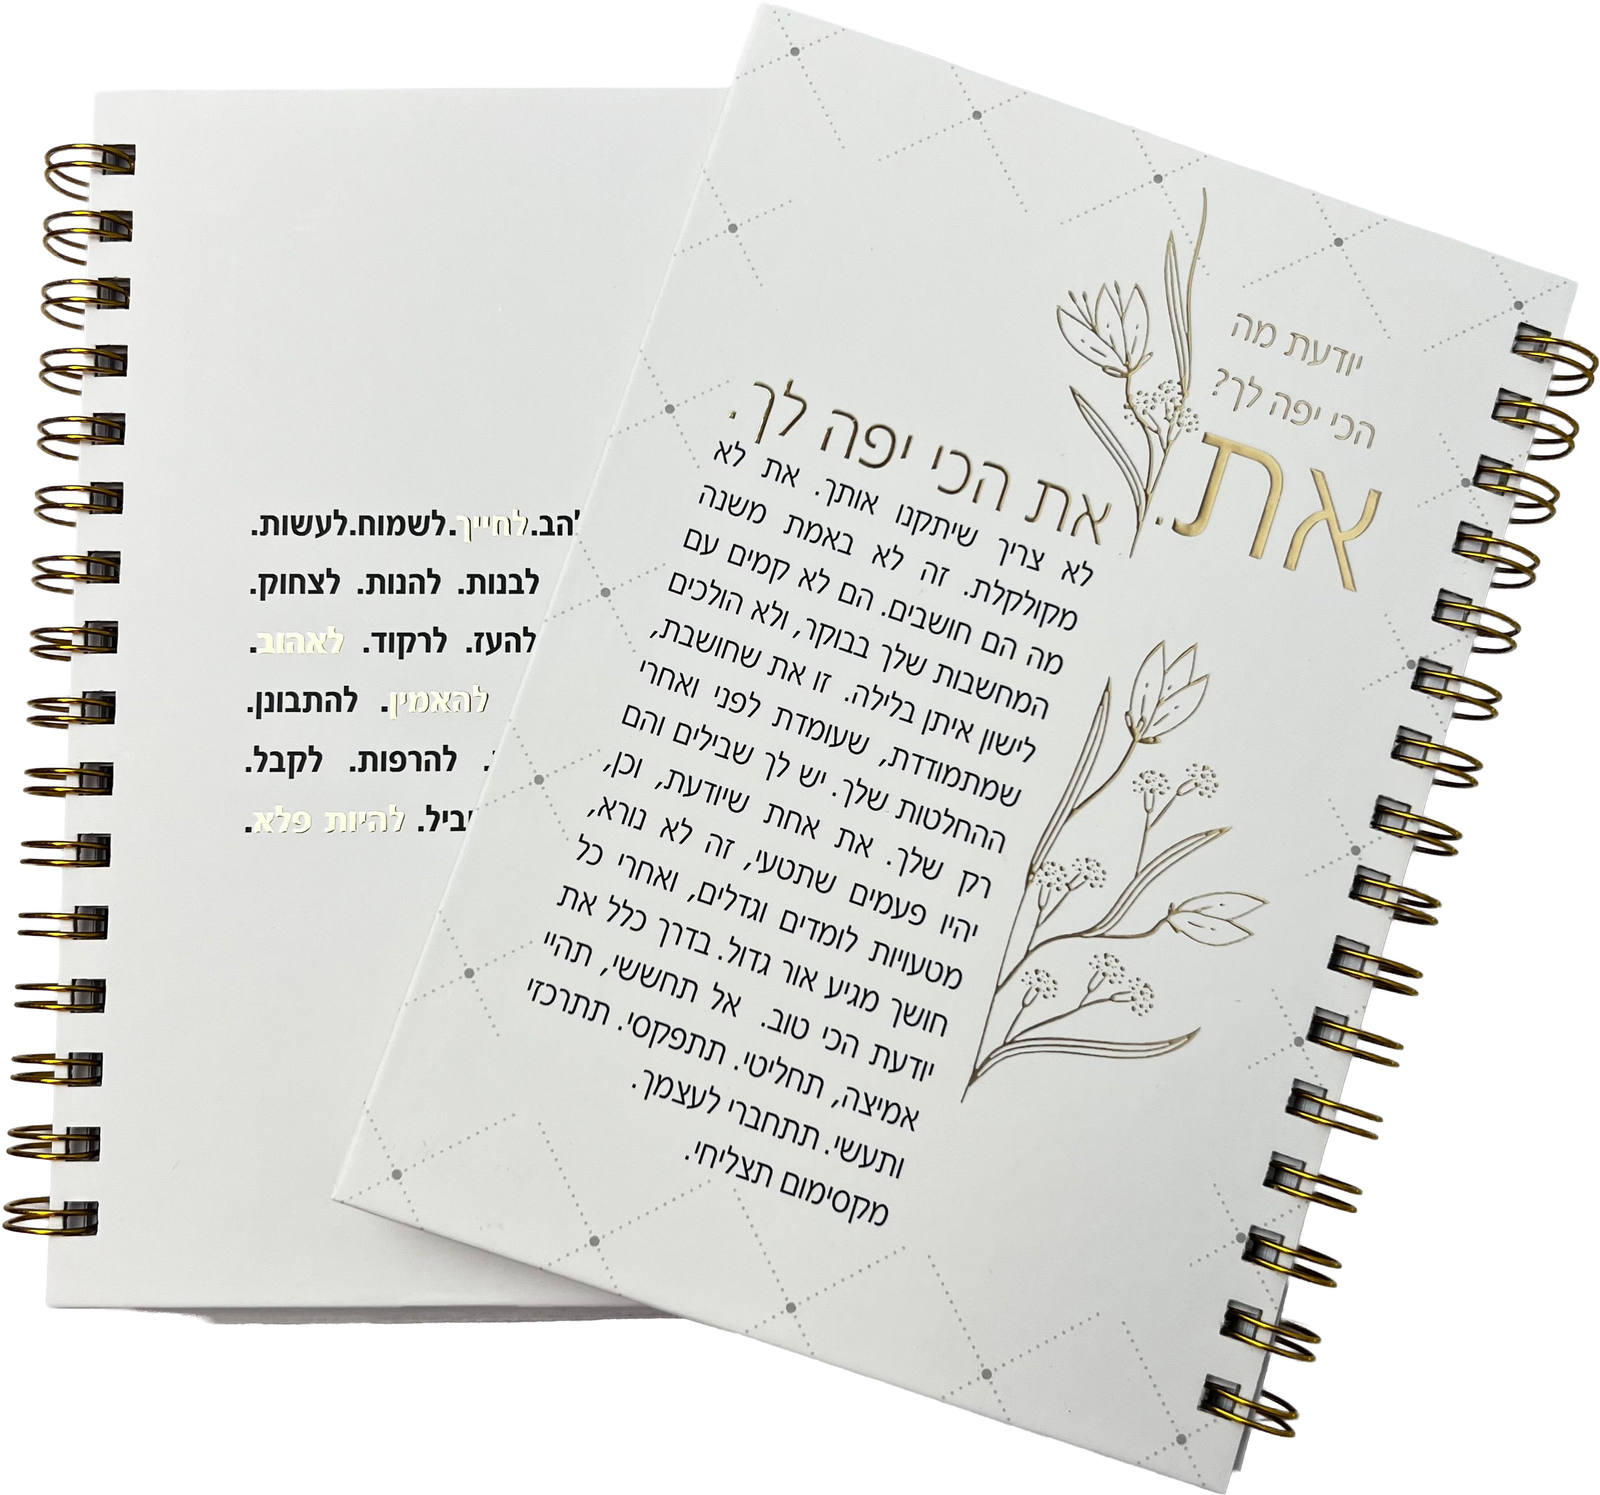 יודעת מה
הכי יפה לך?
את.
את הכי יפה לך.
לא צריך שיתקנו אותך. את לא
מקולקלת. זה לא באמת משנה
מה הם חושבים. הם לא קמים עם
המחשבות שלך בבוקר, ולא הולכים
לישון איתן בלילה. זו את שחושבת,
שמתמודדת, שעומדת לפני ואחרי
ההחלטות שלך. יש לך שבילים והם
רק שלך. את אחת שיודעת, וכן,
יהיו פעמים שתטעי, זה לא נורא,
מטעויות לומדים וגדלים, ואחרי כל
חושך מגיע אור גדול. בדרך כלל את
יודעת הכי טוב. אל תחששי, תהיי
אמיצה, תחליטי. תתפקסי. תתרכזי
ותעשי. תתחברי לעצמך.
מקסימום תצליחי.
לחייך. לשמוח. לעשות.
לבנות. להנות. לצחוק.
להעז. לרקוד. לאהוב.
להאמין. להתבונן.
להרפות. לקבל.
להיות פלא.